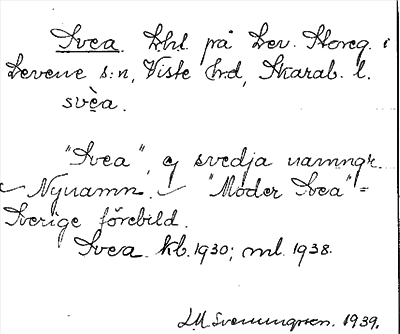 Svea. Lhl. på Lev. Storeg. i
Levene s:n, Viste hd, Skarab. l.
svèa.
"Svea", ej svedja namngr.
Nynamn. "Moder Svea" =
Sverige förebild.
Svea. kb. 1930; ml. 1938.
1939.